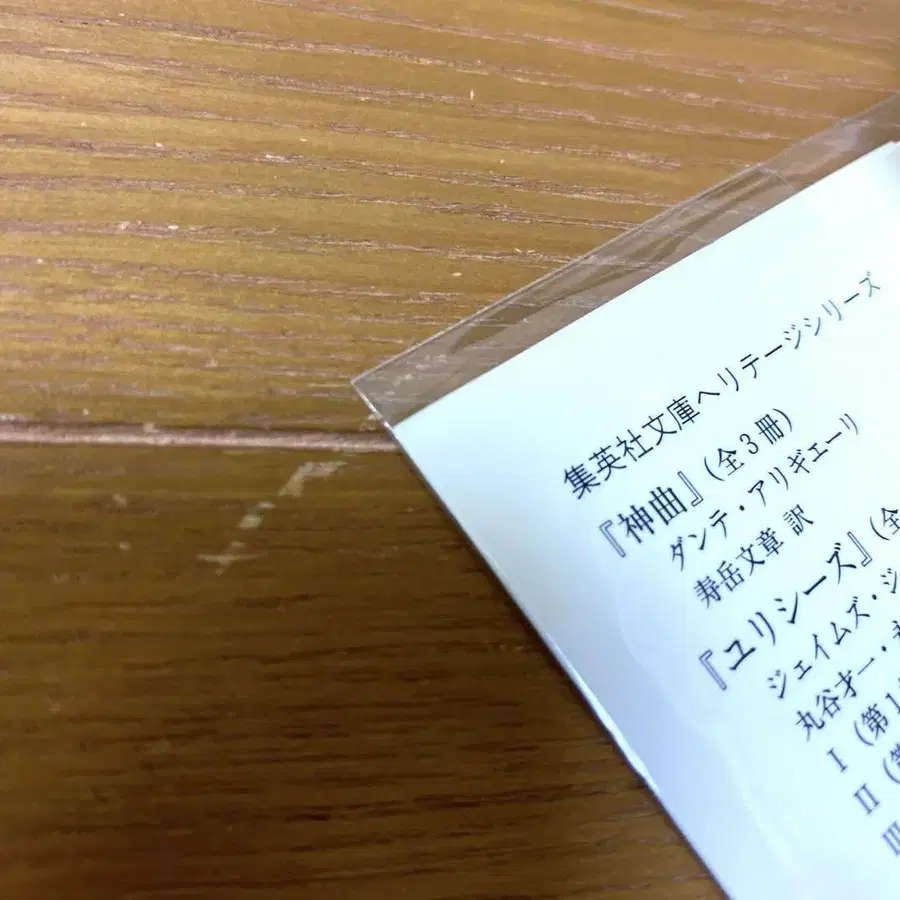 集英社文庫ヘリテージシリーズ
『神曲』(全3冊)
ダンテ・アリギエーリ
寿岳文章 訳
『ユリシーズ』(全
ジェイムズ・ジ
丸谷才一・
I (第1
II (第
III